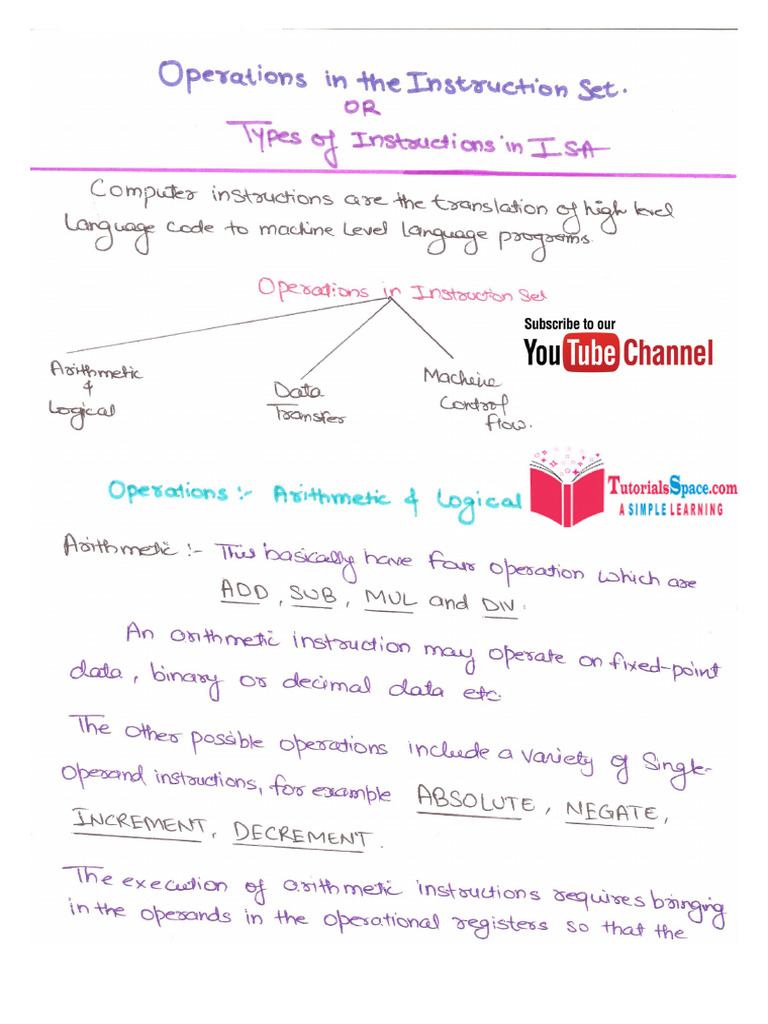 Operations in the Instruction Set.
OR
Types of Instructions in ISA
Computer instructions are the translation of high level
language code to machine level language programs.
Operations in Instruction Set
Subscribe to our
YouTube Channel
Arithmetic
&
Logical
Data
Transfer
Machine
Control
flow.
Operations :- Arithmetic & Logical
TutorialsSpace.com
A SIMPLE LEARNING
Arithmetic :- This basically have four operation which are
ADD, SUB, MUL and DIV.
An arithmetic instruction may operate on fixed-point
data, binary or decimal data etc.
The other possible operations include a variety of Single-
Operand instructions, for example ABSOLUTE, NEGATE,
INCREMENT, DECREMENT.
The execution of arithmetic instructions requires bringing
in the operands in the operational registers so that the